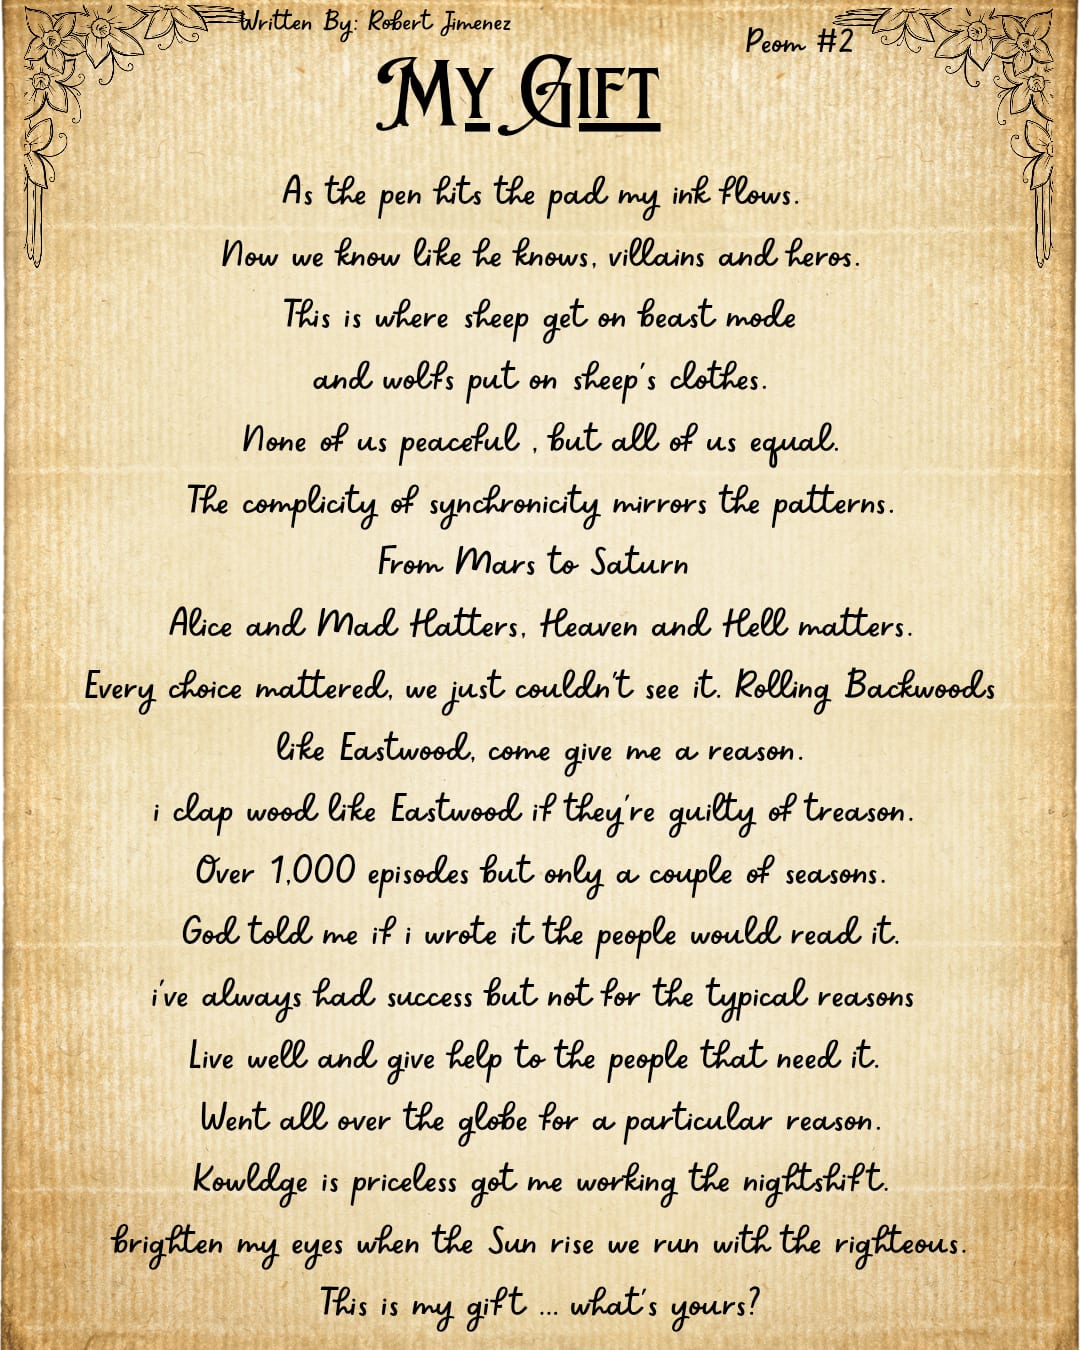 Written By: Robert Jimenez
Peom #2
My Gift
As the pen hits the pad my ink flows.
Now we know like he knows, villains and heros.
This is where sheep get on beast mode
and wolfs put on sheep's clothes.
None of us peaceful , but all of us equal.
The complicity of synchronicity mirrors the patterns.
From Mars to Saturn
Alice and Mad Hatters, Heaven and Hell matters.
Every choice mattered, we just couldn't see it. Rolling Backwoods
like Eastwood, come give me a reason.
i clap wood like Eastwood if they're guilty of treason.
Over 1,000 episodes but only a couple of seasons.
God told me if i wrote it the people would read it.
i've always had success but not for the typical reasons
Live well and give help to the people that need it.
Went all over the globe for a particular reason.
Kowldge is priceless got me working the nightshift.
brighten my eyes when the Sun rise we run with the righteous.
This is my gift ... what's yours?